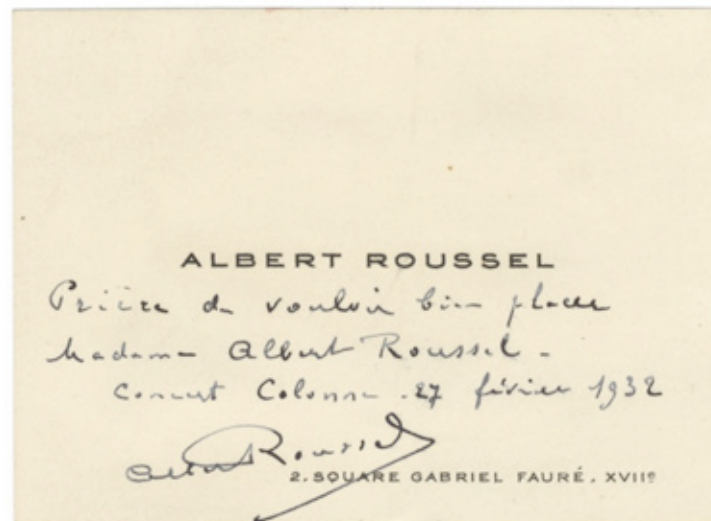 ALBERT ROUSSEL
Prière de vouloir bien placer
Madame Albert Roussel -
Concert Colonne . 27 février 1932
Albert Roussel
2. SQUARE GABRIEL FAURÉ. XVIIe